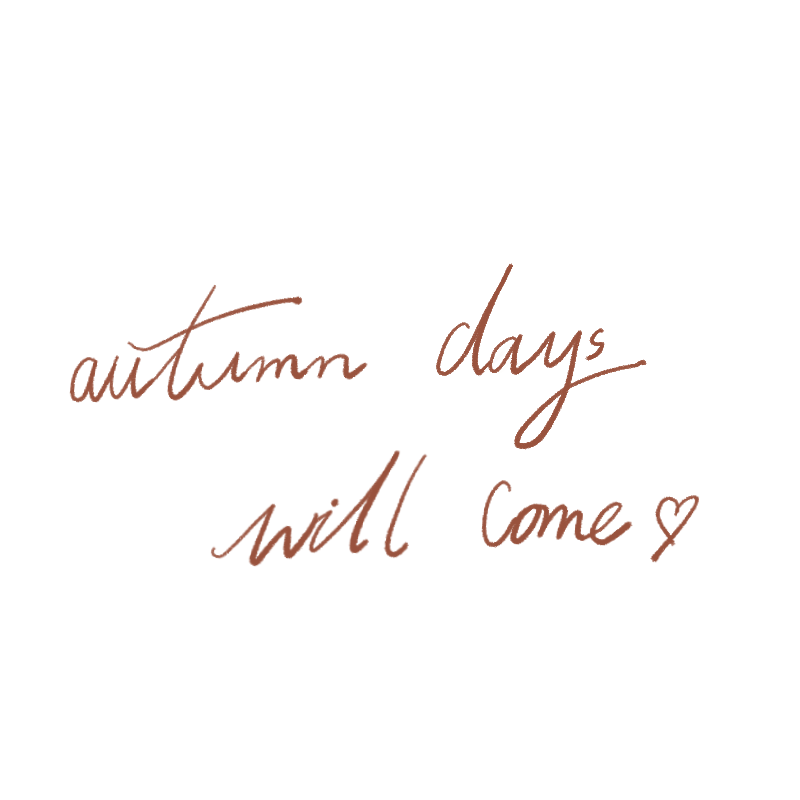 autumn days
will come♡